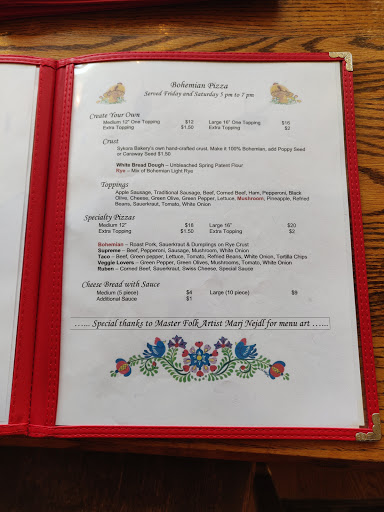 Bohemian Pizza
Served Friday and Saturday 5 pm to 7 pm
Create Your Own
Medium 12" One Topping $12 Large 16" One Topping $16
Extra Topping $1.50 Extra Topping $2
Crust
Sykora Bakery's own hand-crafted crust. Make it 100% Bohemian, add Poppy Seed
or Caraway Seed $1.50
White Bread Dough – Unbleached Spring Patent Flour
Rye – Mix of Bohemian Light Rye
Toppings
Apple Sausage, Traditional Sausage, Beef, Corned Beef, Ham, Pepperoni, Black
Olive, Cheese, Green Olive, Green Pepper, Lettuce, Mushroom, Pineapple, Refried
Beans, Sauerkraut, Tomato, White Onion
Specialty Pizzas
Medium 12" $18 Large 16" $20
Extra Topping $1.50 Extra Topping $2
Bohemian – Roast Pork, Sauerkraut & Dumplings on Rye Crust
Supreme – Beef, Pepperoni, Sausage, Mushroom, White Onion
Taco – Beef, Green pepper, Lettuce, Tomato, Refried Beans, White Onion, Tortilla Chips
Veggie Lovers – Green Pepper, Green Olives, Mushroom, Tomato, White Onion
Ruben – Corned Beef, Sauerkraut, Swiss Cheese, Special Sauce
Cheese Bread with Sauce
Medium (5 piece) $4 Large (10 piece) $9
Additional Sauce $1
…... Special thanks to Master Folk Artist Marj Nejdl for menu art …...